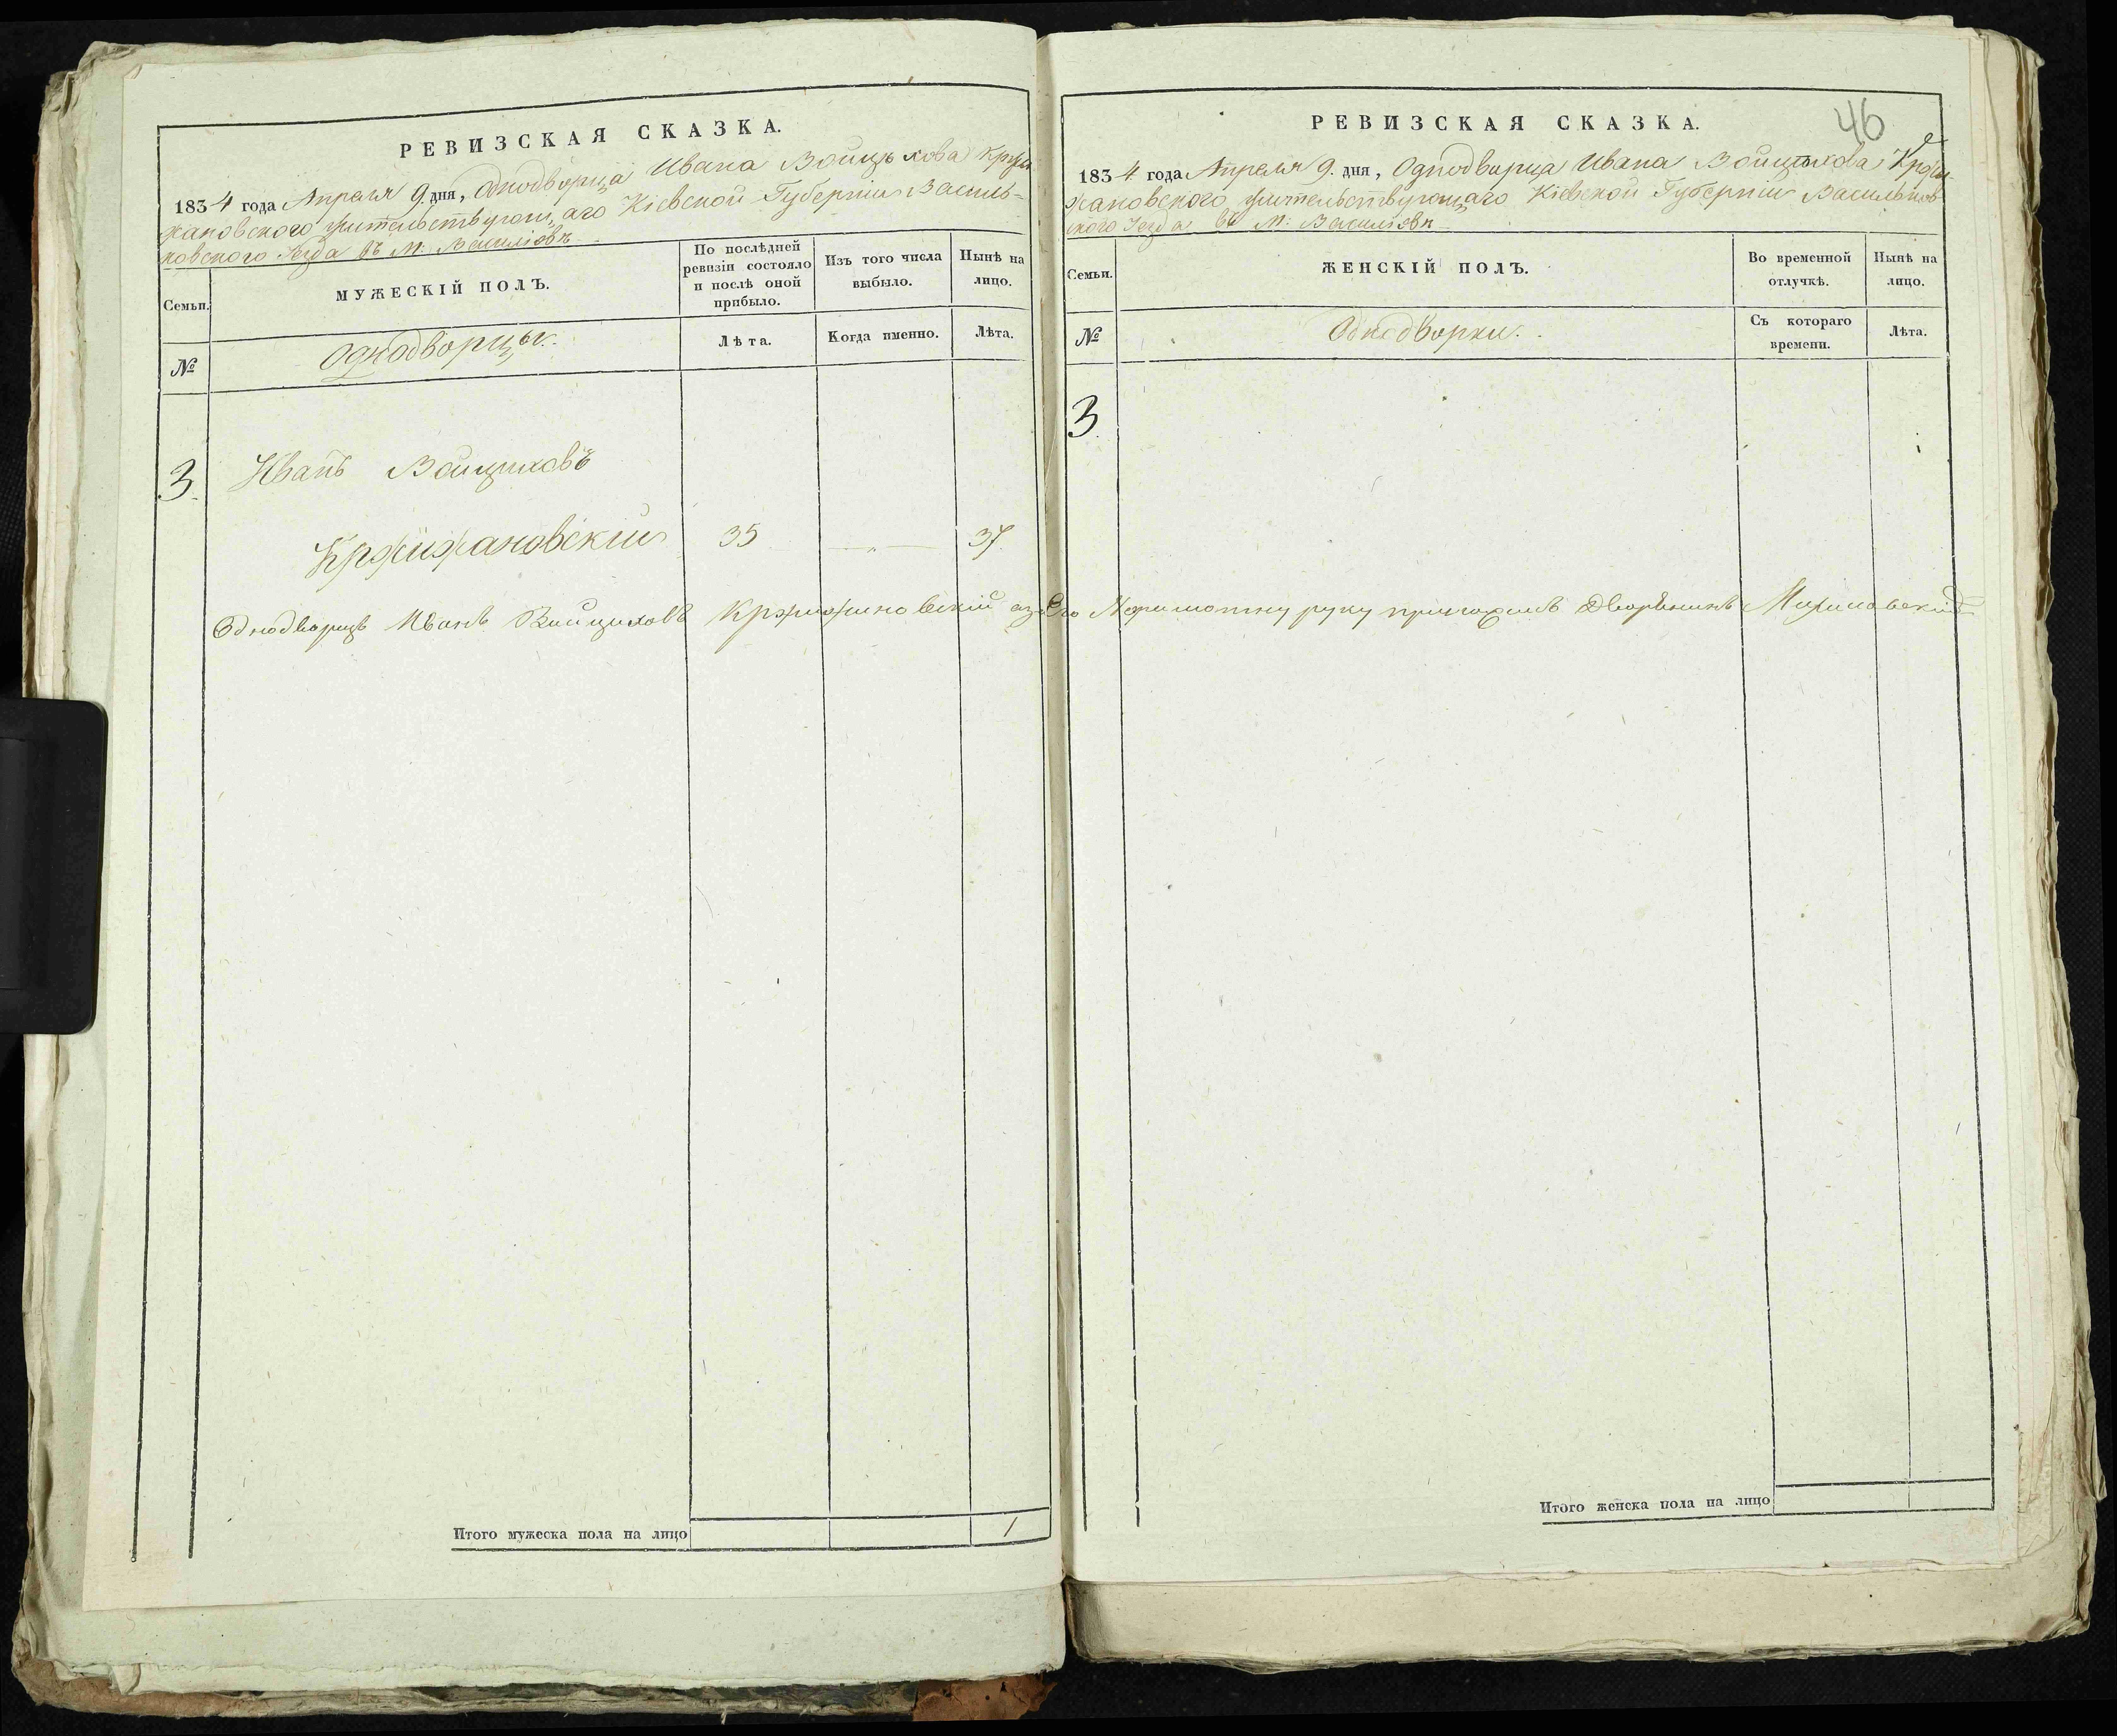 РЕВИЗСКАЯ СКАЗКА.
1834 года Апреля 9. дня, Однодворца Ивана Войцъхова Кржи
жановского жительствующаго Кіевской Губерніи Василь=
ковского Уезда въ М:
Семьи.
МУЖЕСКІЙ ПОЛЪ.
По послѣдней
ревизіи состояло
и послѣ оной
прибыло.
Изъ того числа
выбыло.
Нынѣ на
лицо.
№
Однодворцы.
Лѣта.
Когда именно.
Лѣта.
3.
Иванъ Войциховъ
Кржижановскій 35 —„— 37.
Однодворецъ Иванъ Войциховъ Кржижановскій а за
Итого мужеска пола на лицо 1
46
РЕВИЗСКАЯ СКАЗКА.
1834 года Апреля 9. дня, Однодворца Ивана Войцѣхова Кржи
жановского жительствующаго Кіевской Губерніи Васильков
ского Уезда въ М:
Семьи.
ЖЕНСКІЙ ПОЛЪ.
Во временной
отлучкѣ.
Нынѣ на
лицо.
№
Однодворки.
Съ котораго
времени.
Лѣта.
3.
его руку приложилъ Дворянинъ
Итого женска пола на лицо